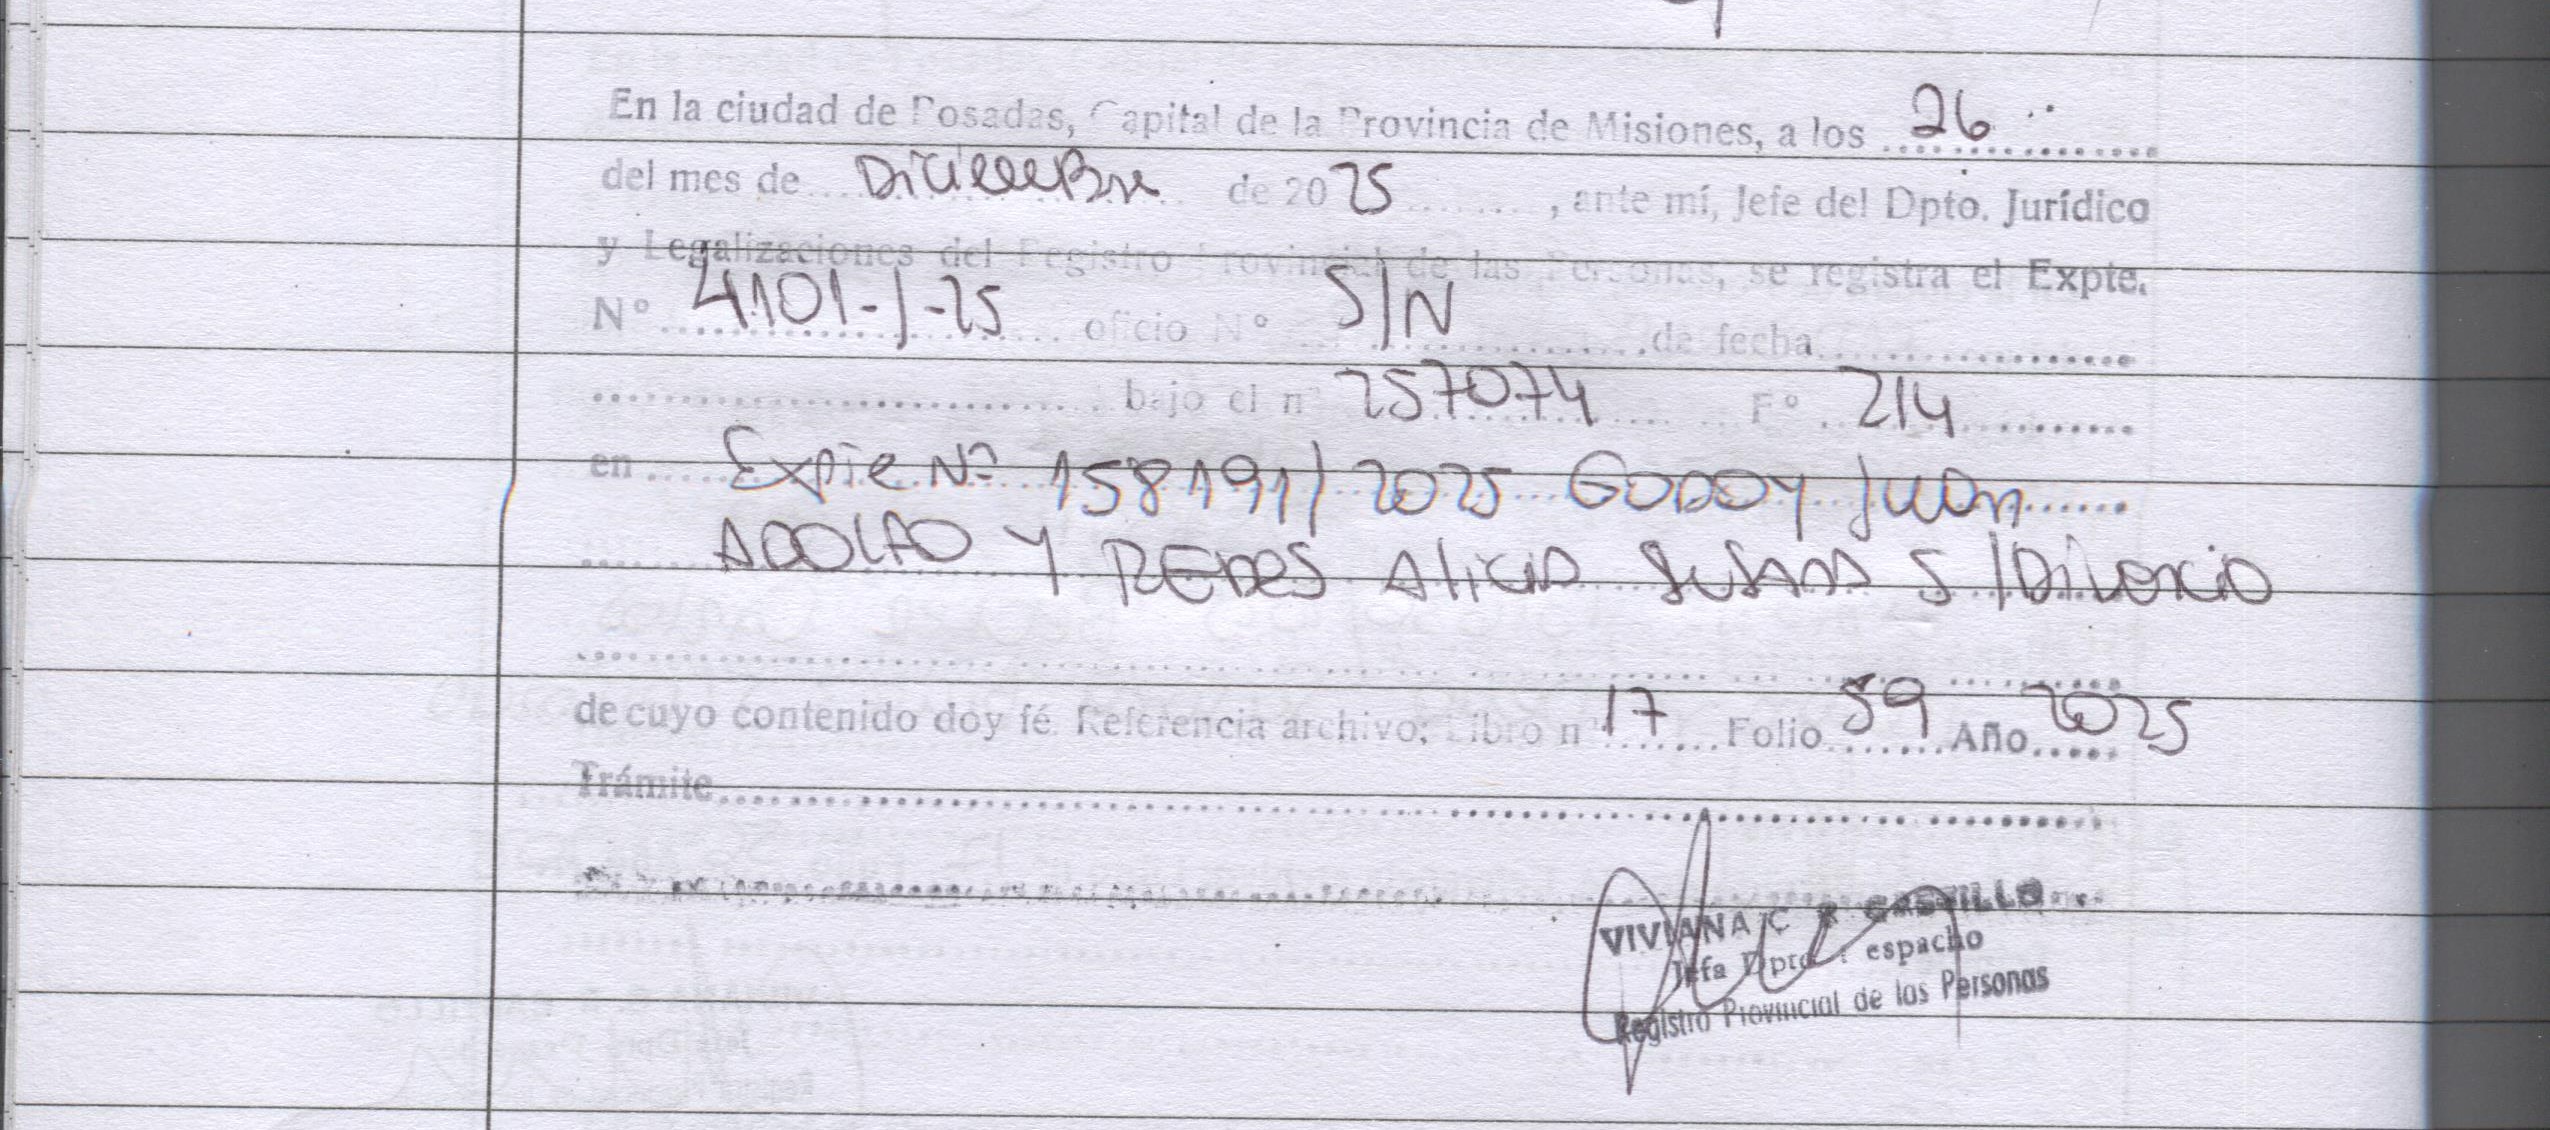 En la ciudad de Posadas, Capital de la Provincia de Misiones, a los 26
del mes de Diciembre de 2025, ante mí, Jefe del Dpto. Jurídico
y Legalizaciones del Registro Provincial de las Personas, se registra el Expte.
Nº 4101-J-25 oficio Nº S/N de fecha
bajo el nº 257074 Fº 214
en Expte Nº 158191/2025 Godoy Juan
Adolfo y Alicia Susana S/Divorcio
de cuyo contenido doy fé. Referencia archivo; Libro nº 17 Folio 59 Año 2025
Trámite
VIVIANA C. R. CASTILLO
Jefa Dpto. Despacho
Registro Provincial de las Personas